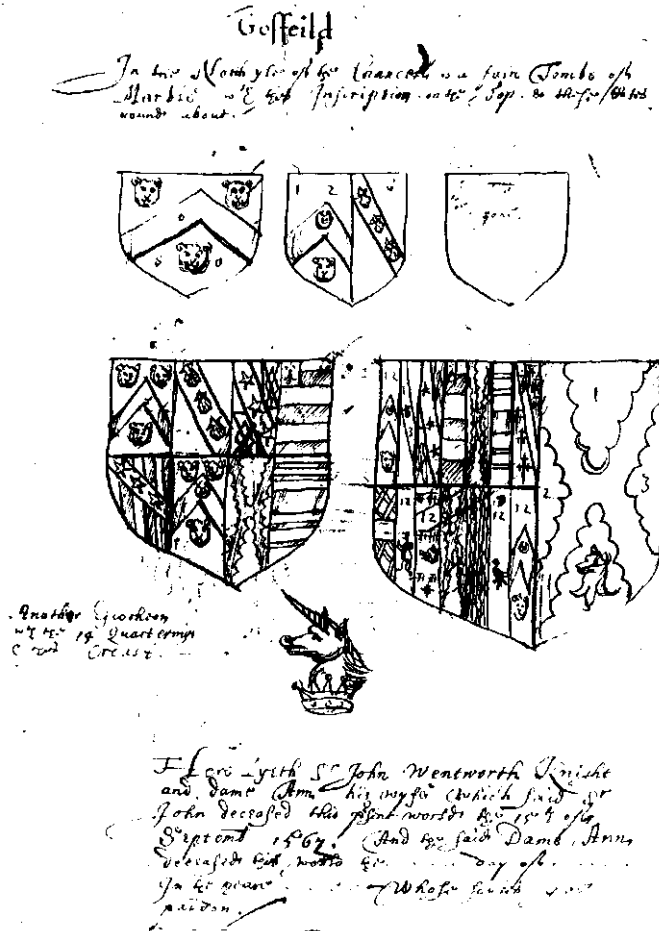 Gosfeild
In the North yle of the Chauncell is a fair Tombe of
Marble wt this Inscription on the Top & these
round about.
1 2
gone
12
1
12 12 12 12
2
3
Another
wt the 19 Quarterings
Creast
Here Lyeth Sr John Wentworth Knight
and dame Ann his wyfe (which said Sr
John deceased this psent world the 15th of
Septemb 1567. And the said Dame Ann
deceased this world the ........ day of ........
In the yeare ........ (Whose
pardon.